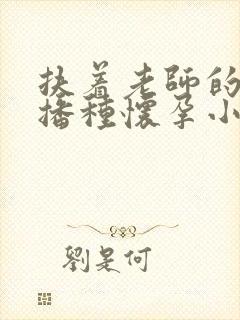 扶着老師的
播種懷孕小
劉是何